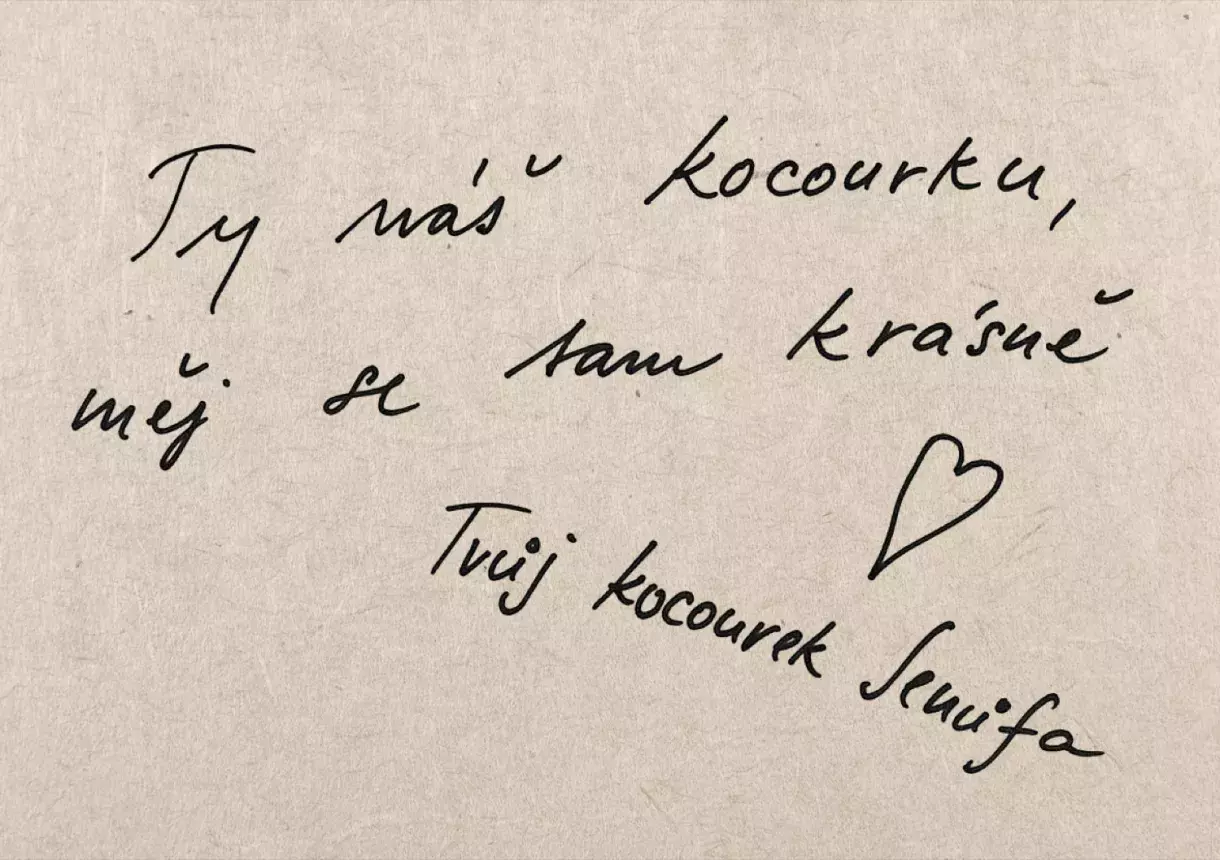 Ty náš kocourku,
měj se tam krásně
Tvůj kocourek Senůfa